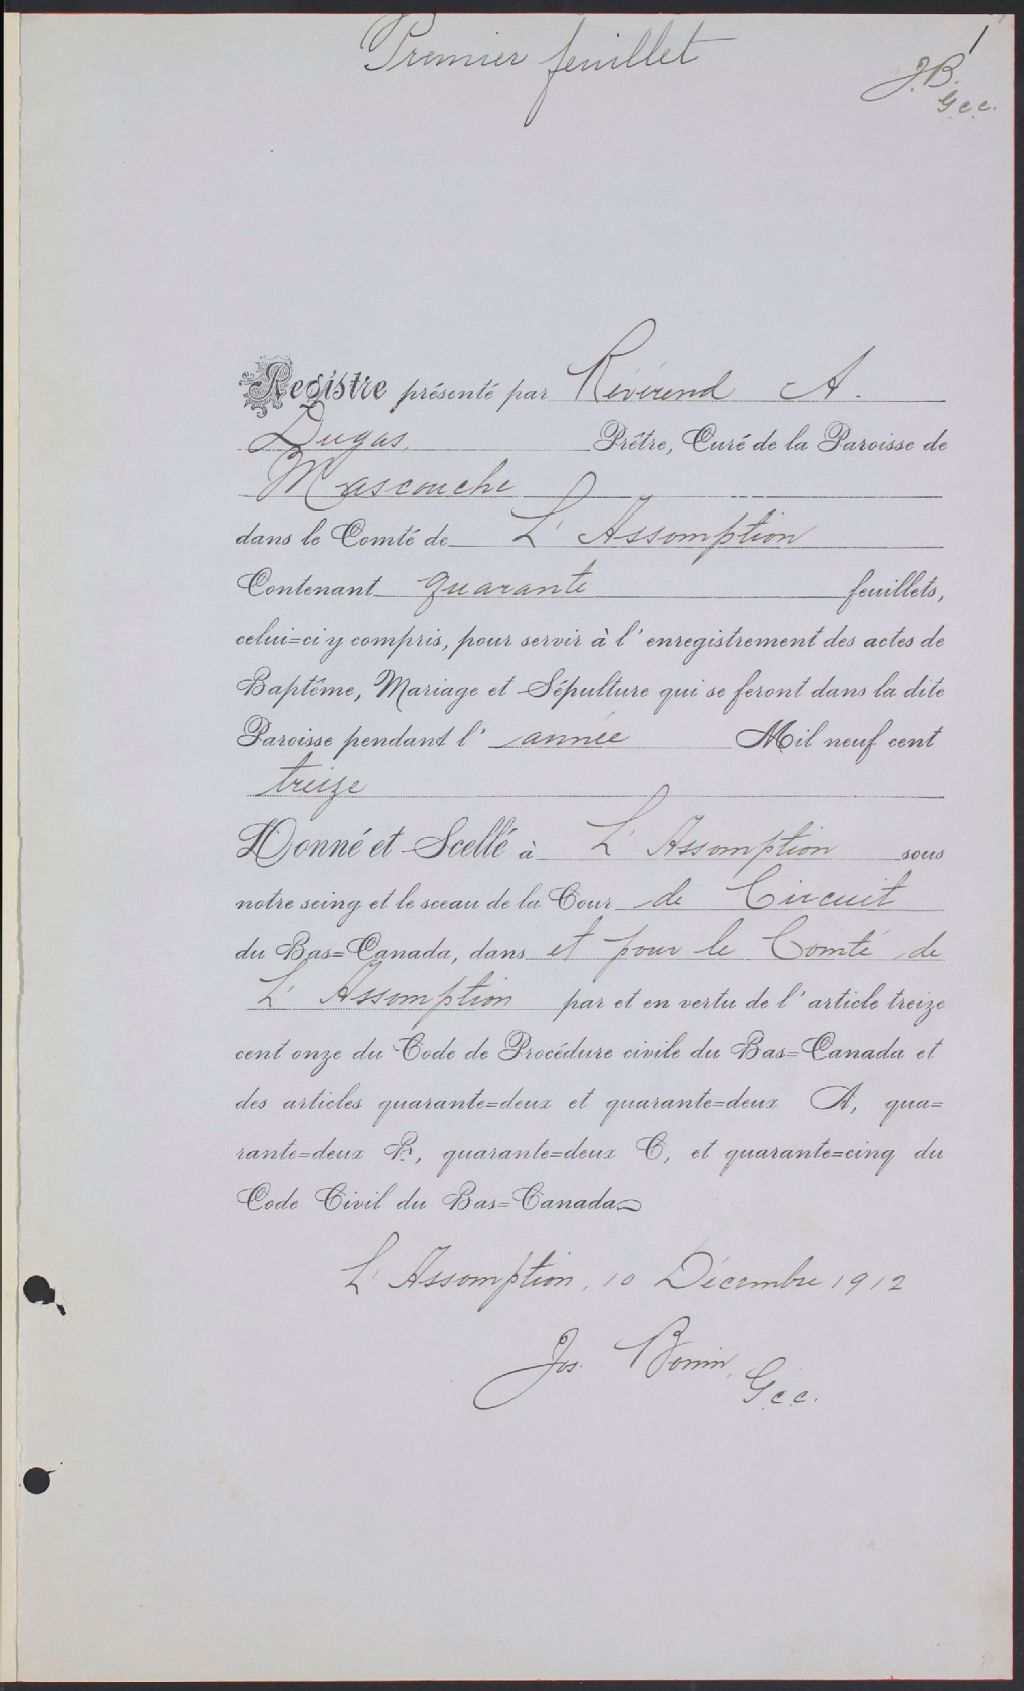 Premier feuillet
1
J.B.
G.c.c.
Registre présenté par Révérend A.
Dugas, Prêtre, Curé de la Paroisse de
Mascouche
dans le Comté de L'Assomption
Contenant quarante feuillets,
celui=ci y compris, pour servir à l'enregistrement des actes de
Baptême, Mariage et Sépulture qui se feront dans la dite
Paroisse pendant l'année Mil neuf cent
treize
Donné et Scellé à L'Assomption sous
notre seing et le sceau de la Cour de Circuit
du Bas=Canada, dans et pour le Comté de
L'Assomption par et en vertu de l'article treize
cent onze du Code de Procédure civile du Bas=Canada et
des articles quarante=deux et quarante=deux A, qua=
rante=deux B, quarante=deux C, et quarante=cinq du
Code Civil du Bas=Canada
L'Assomption, 10 Décembre 1912
Jos. Bonin,
G.c.c.